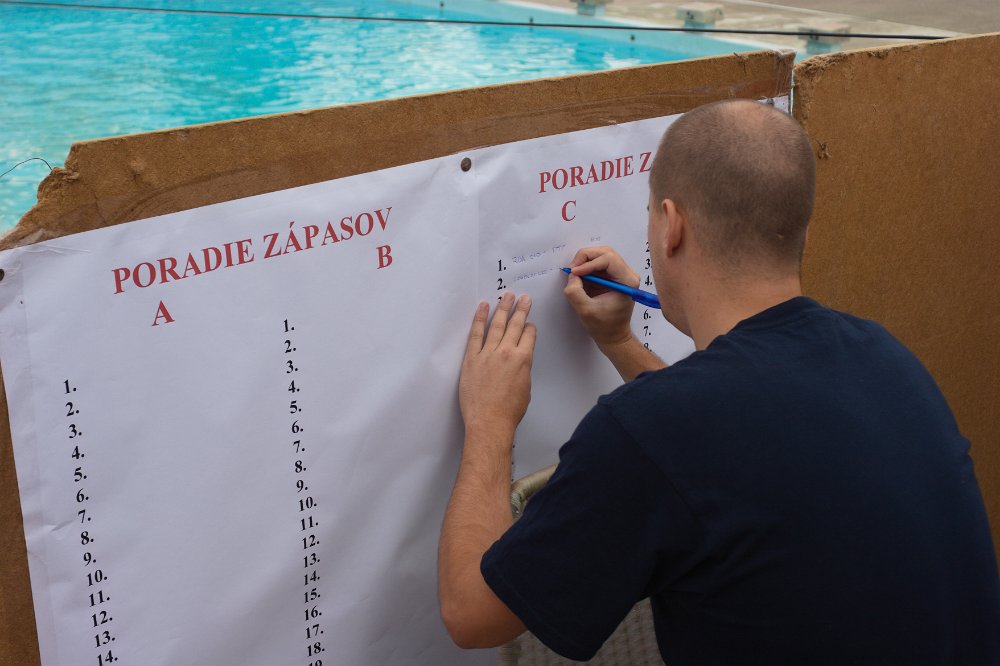 PORADIE ZÁPASOV
A
B
1.
2.
3.
4.
5.
6.
7.
8.
9.
10.
11.
12.
13.
14.
1.
2.
3.
4.
5.
6.
7.
8.
9.
10.
11.
12.
13.
14.
15.
16.
17.
18.
19
PORADIE Z
C
1.
2.
2.
3.
4.
6.
7.
8.